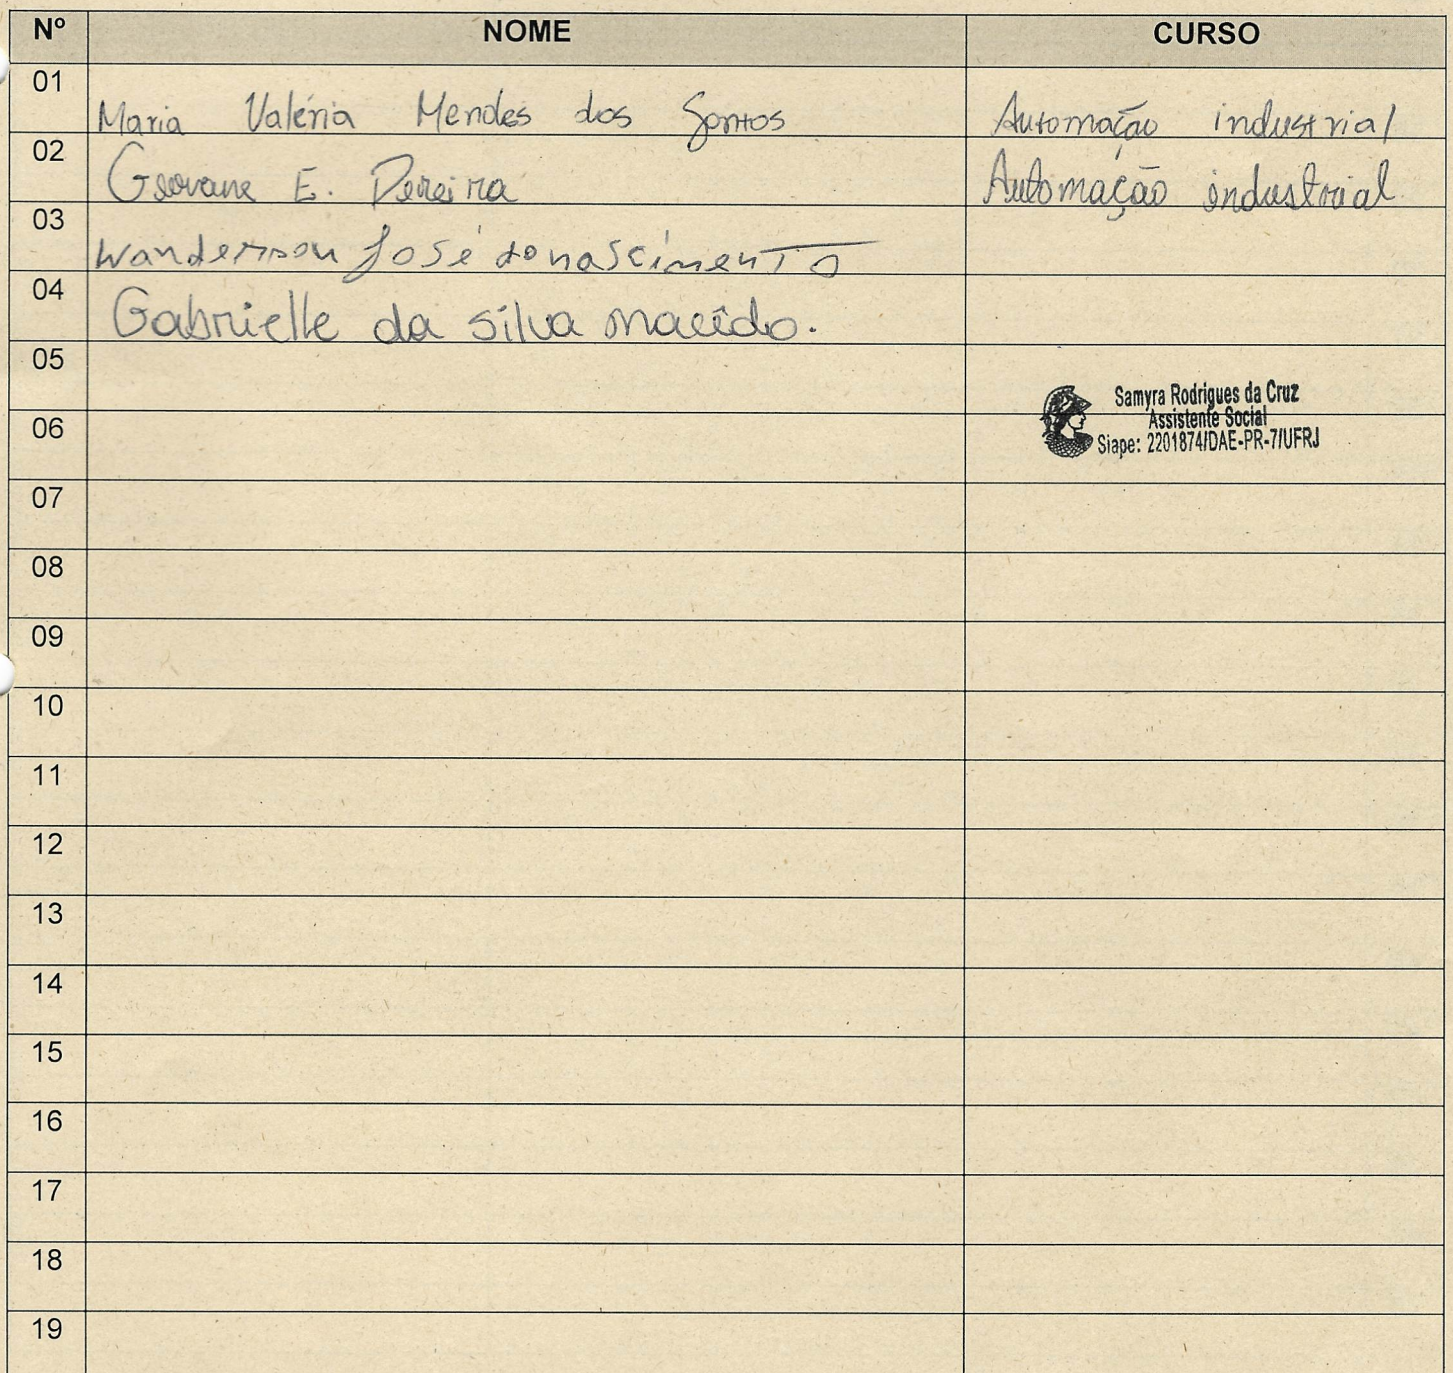 Nº NOME CURSO
01 Maria Valéria Mendes dos Santos Automação industrial
02 Geovane E. Pereira Automação industrial
03 Wanderson José do nascimento
04 Gabrielle da silva macêdo.
05
Samyra Rodrigues da Cruz
Assistente Social
06
Siape: 2201874/DAE-PR-7/UFRJ
07
08
09
10
11
12
13
14
15
16
17
18
19